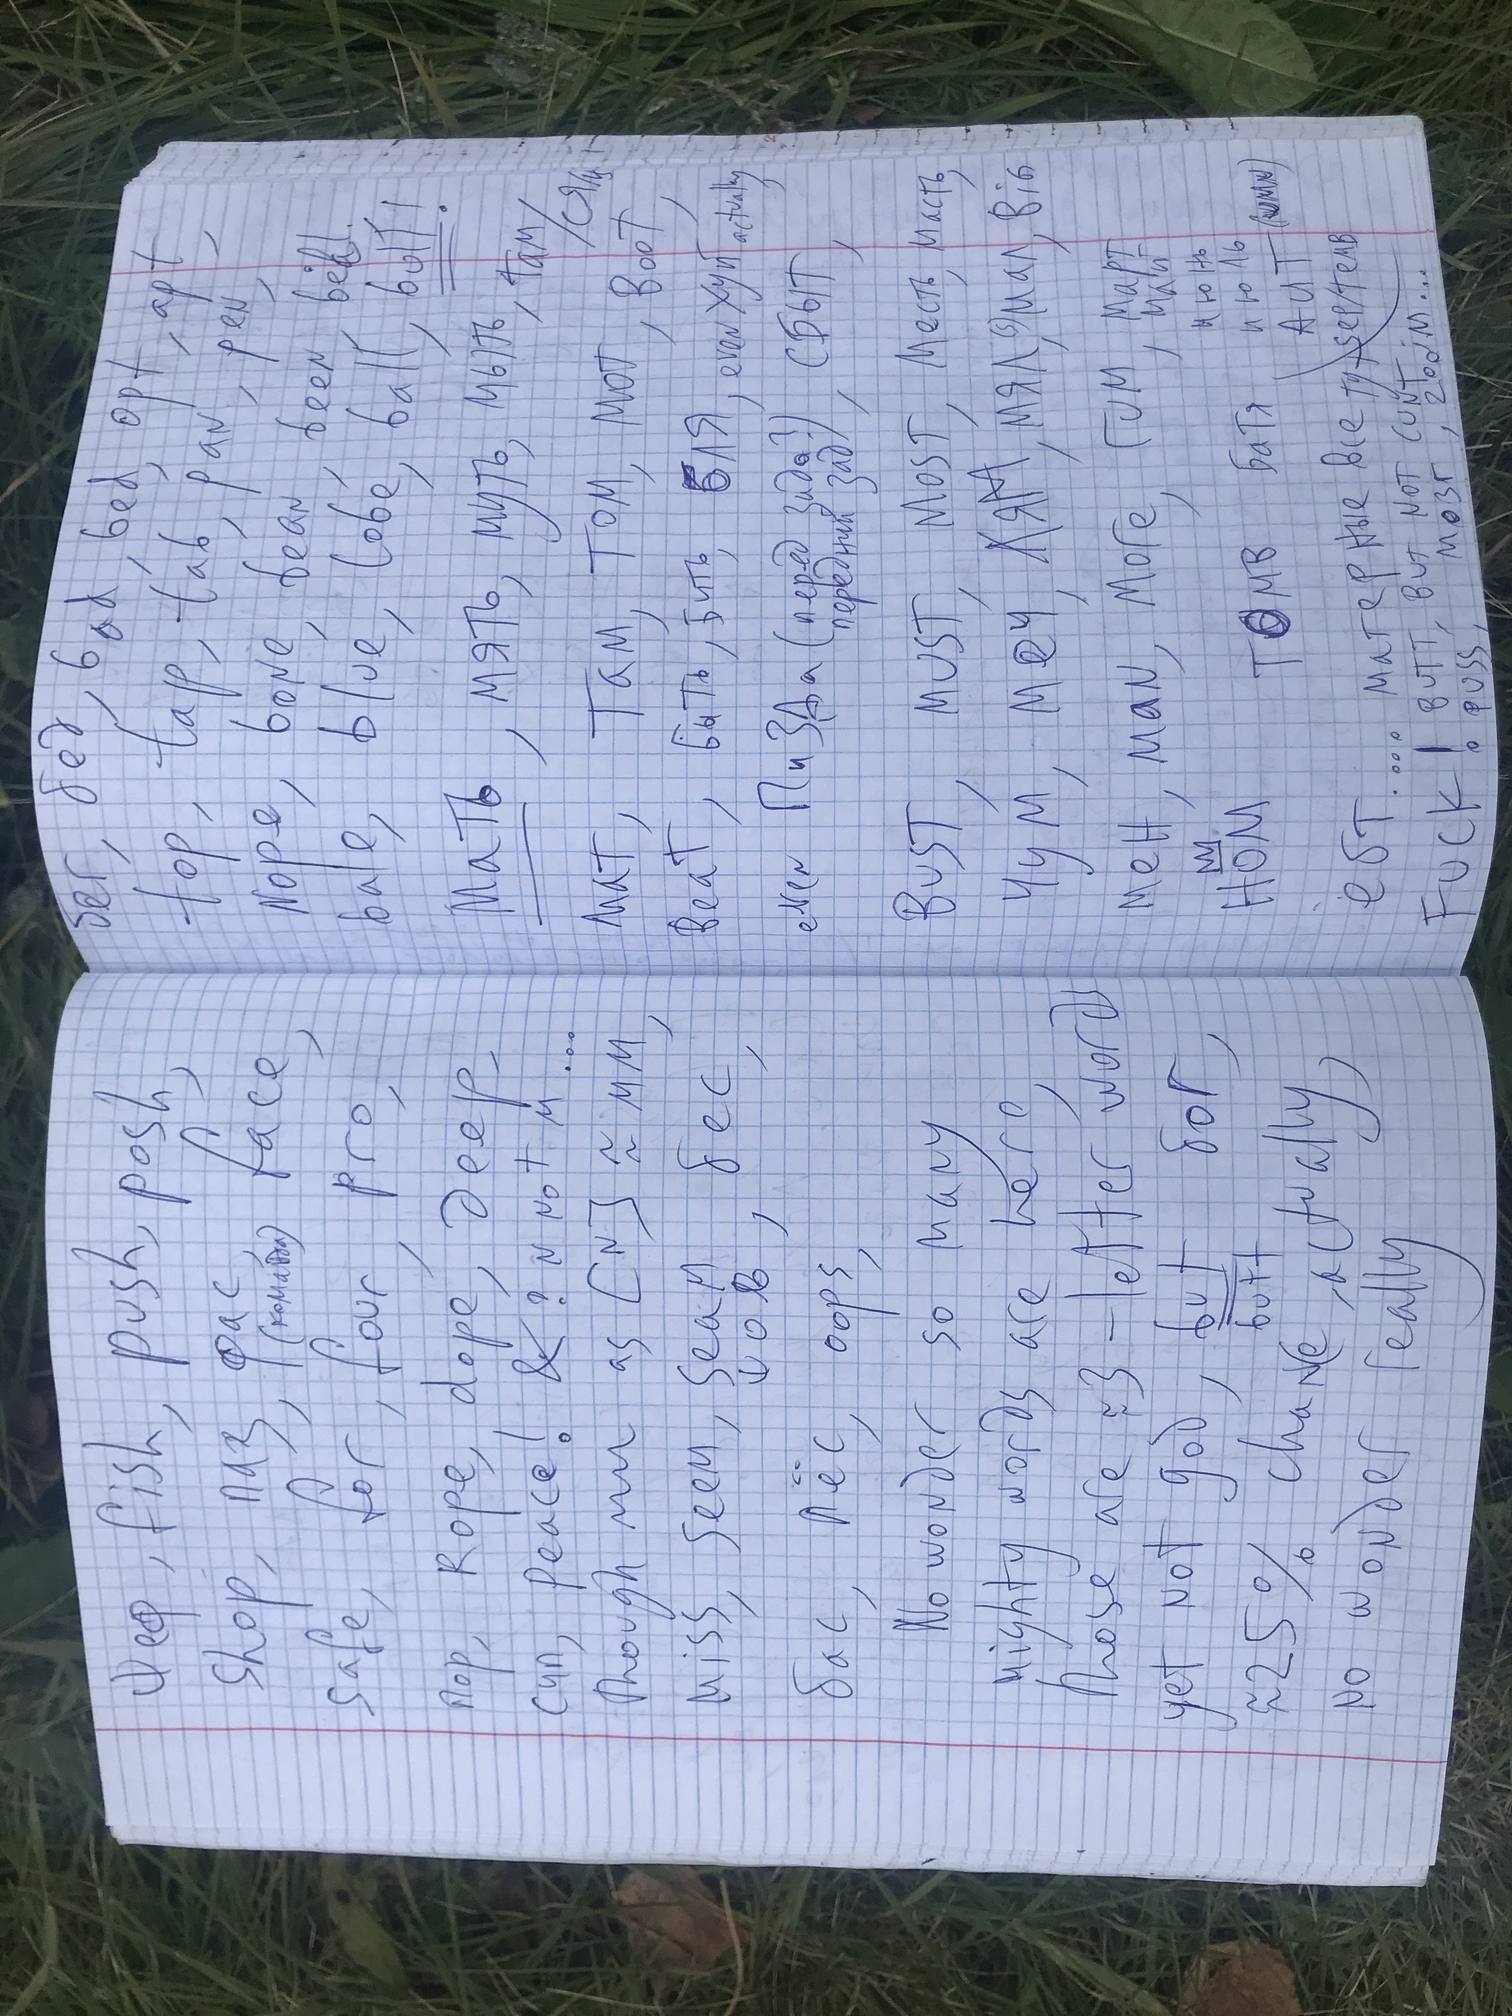 шеф, fish, push, posh,
shop, паз, фас, face,
(команда)
safe, for, four, pro,
пор, rope, dope, deep,
cyn, peace! &? n not м ...
Though мм as [n] ≈ мм,
miss, seem, seam, бес,
бас, пёс, oops,
No wonder so many
mighty words are here,
Those are ≈3-letter words
yet not god, but бог,
butt
≈25% chance, actually,
no wonder really
бег, бед, bad, bed, opt, apt,
top, tap, tab, pan, pen,
Nope, bone, bean, been,
bale, blue, lobe, ball, bull!
Мать, мять, муть, мыть, там
Мат, Там, Том, мот, Boot,
Beat, быть, бить, бля, even хуй actually
even Пизда (перед зада?) сбыт,
передний зад
Bust, must, Most, Месть, Масть,
Чум, меч, лял, мял, мал, Big
мен, man, more, Гим, март
май
НОМ июнь
июль
Томв батя Аит
ёбт.... матерные вые
FUCK! BUTT, BUT NOT CUNT
puss, мозг, 2odim...